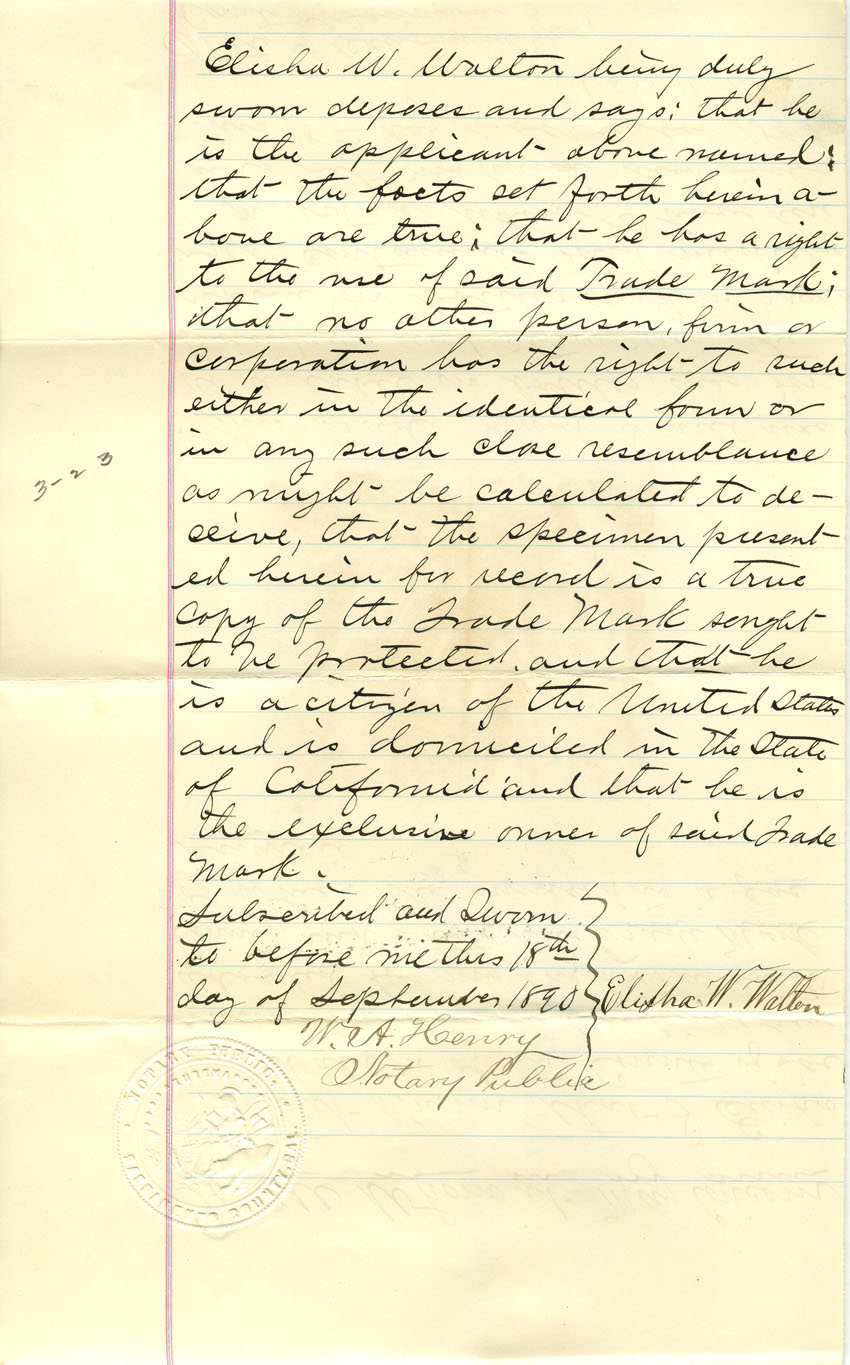 Elisha W. Walton being duly
sworn deposes and says: that he
is the applicant above named;
that the facts set forth herein a-
bove are true; that he has a right
to the use of said Trade Mark;
that no other person, firm or
corporation has the right to such
either in the identical form or
in any such close resemblance
as might be calculated to de-
ceive, that the specimen present-
ed herein for record is a true
copy of the Trade Mark sought
to be protected, and that he
is a citizen of the United States
and is domiciled in the State
of California and that he is
the exclusive owner of said Trade
Mark.
3-23
Subscribed and Sworn
to before me this 18th
day of September 1890
Elisha W. Walton
W. A. Henry
Notary Public
NOTARY PUBLIC
COUNTY, CAL.